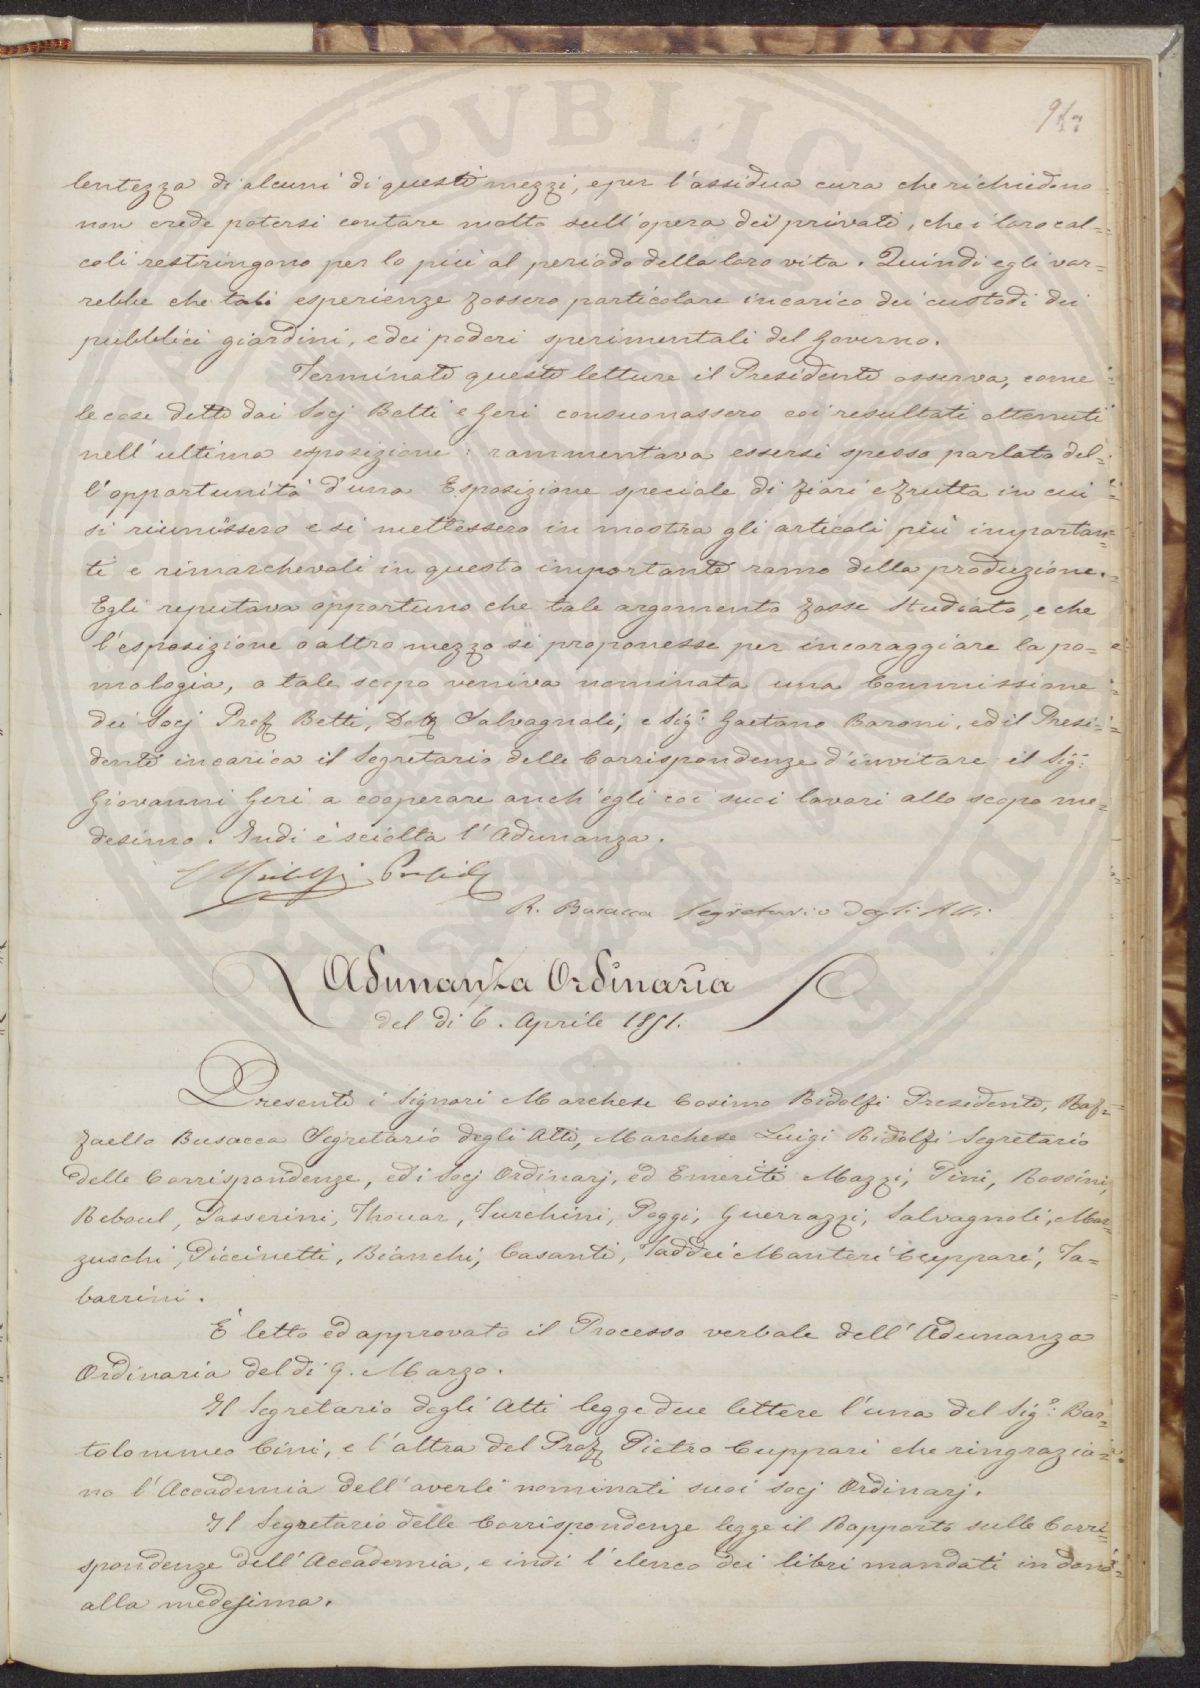 lentezza di alcuni di questi mezzi, e per l'assidua cura che richiedono
non crede potersi contare molto sull'opera dei privati, che i loro cal=
coli restringono per lo più al periodo della loro vita. Quindi egli vor=
rebbe che tali esperienze fossero particolare incarico dei custodi dei
pubblici giardini, e dei poderi sperimentali del Governo.
Terminate queste letture il Presidente osserva, come
le cose dette dai Socj Betti e Geri consuonassero coi resultati ottenuti
nell'ultima esposizione: rammentava essersi spesso parlato del=
l'opportunità d'una Esposizione speciale di fiori e frutta in cui
si riunissero e si mettessero in mostra gli articoli più importan=
ti e rimarchevoli in questo importante ramo della produzione.
Egli reputava opportuno che tale argomento fosse studiato, e che
l'esposizione o altro mezzo si proponesse per incoraggiare la po=
mologia, a tale scopo veniva nominata una Commissione
dei Socj Prof Betti, Dott Salvagnoli, e Sigr: Gaetano Baroni, ed il Presi=
dente incarica il Segretario delle Corrispondenze d'invitare il Sigr:
Giovanni Geri a cooperare anch'egli coi suoi lavori allo scopo me=
desimo. Indi è sciolta l'Adunanza.
C Ridolfi
R. Busacca Segretario degli Atti
Adunanza Ordinaria
del dì 6. Aprile 1851.
Presenti i Signori Marchese Cosimo Ridolfi Presidente, Raf=
faello Busacca Segretario degli Atti, Marchese Luigi Ridolfi Segretario
delle Corrispondenze, ed i Socj Ordinarj, ed Emeriti Mazzi, Pini, Rossini,
Reboul, Passerini, Thouar, Turchini, Poggi, Guerrazzi, Salvagnoli, Mar=
zuschi, Piccinetti, Bianchi, Casanti, Taddei Manteri Cuppari, Ta=
barrini.
È letto ed approvato il Processo verbale dell'Adunanza
Ordinaria del dì 9. Marzo.
Il Segretario degli Atti legge due lettere l'una del Sigr: Bar=
tolommeo Cini, e l'altra del Prof Pietro Cuppari che ringrazia=
no l'Accademia dell'averli nominati suoi socj Ordinarj.
Il Segretario delle Corrispondenze legge il Rapporto sulle Corri=
spondenze dell'Accademia, e indi l'elenco dei libri mandati in dono
alla medesima.